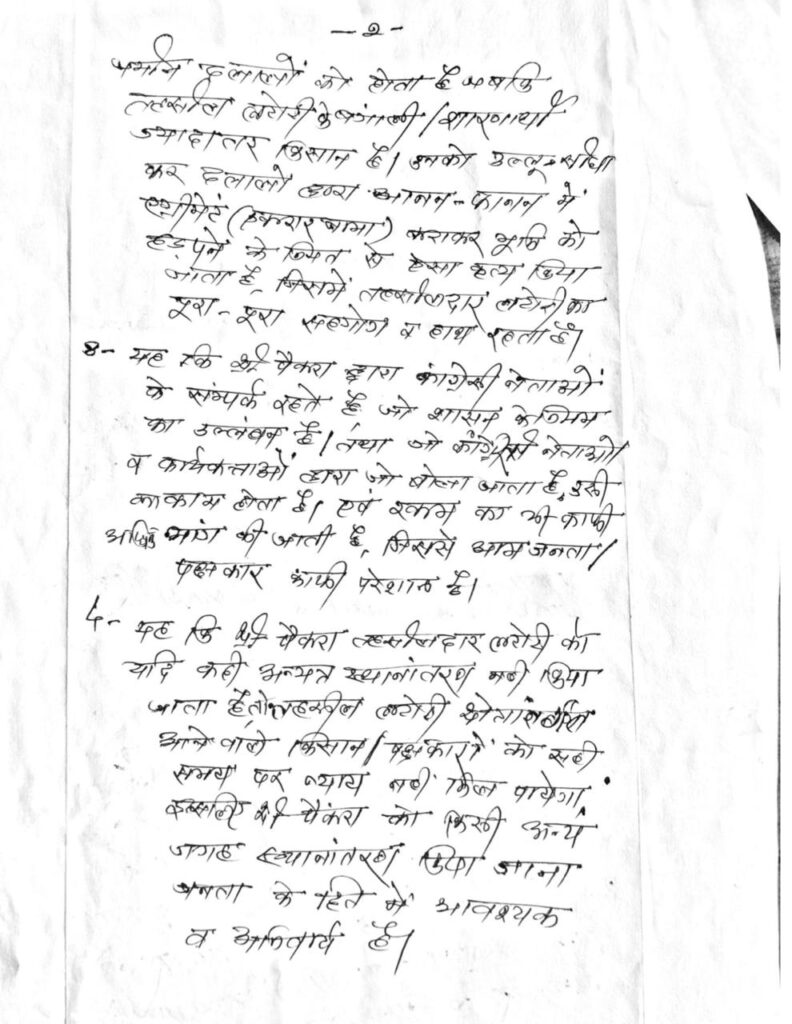 -२-
जमीन दलालों को होता है जबकि
तहसील लटोरी के बंगाली/शरणार्थी
ज्यादातर किसान है। उनको उल्लू सीधा
कर दलालों द्वारा आनन-फानन में
एग्रीमेंट (इकरारनामा) कराकर भूमि को
हड़पने के नियत से ऐसा कृत्य किया
जाता है, जिसमें तहसीलदार लटोरी का
पूरा-पूरा सहयोग व हाथ रहता है।
४- यह कि श्री पैकरा द्वारा कांग्रेसी नेताओं
के संम्पर्क रहते है जो शासन के नियम
का उल्लंघन है। तथा जो कांग्रेसी नेताओं
व कार्यकर्ताओं द्वारा जो बोला जाता है, उसी
का काम होता है। एवं रकम का भी काफी
अधिक मांग की जाती है, जिससे आम जनता/
पक्षकार काफी परेशान है।
५- यह कि श्री पैकरा तहसीलदार लटोरी को
यदि कही अन्यत्र स्थानांतरण नही किया
जाता है तो तहसील लटोरी
आने वाले किसान/पक्षकारों को सही
समय पर न्याय नही मिल पायेगा,
इसलिए श्री पैकरा को किसी अन्य
जगह स्थानांतरण किया जाना
जनता के हित में आवश्यक
व अनिवार्य है।